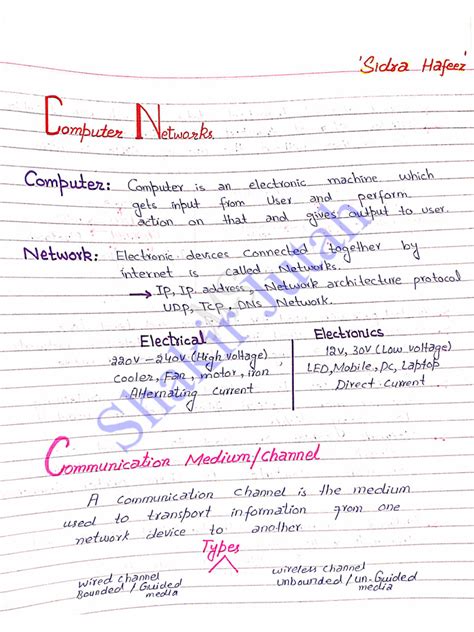 'Sidra Hafeez'
Computer Networks
Computer: Computer is an electronic machine which
gets input from User and perform
action on that and gives output to user.
Network: Electronic devices connected together by
internet is called Networks.
→ Ip, Ip address, Network architecture protocol
UDP, TCP, DNs Network.
Electrical
220v - 240v (High voltage)
Cooler, Fan, motor, iron
Alternating Current
Electronics
12v, 30v (Low voltage)
LED, Mobile, Pc, Laptop
Direct Current
Communication Medium/Channel
A Communication Channel is the medium
used to transport information from one
network device to another.
Types
wired channel
Bounded / Guided
media
wireless channel
unbounded / un-Guided
media
Shakir Jutah